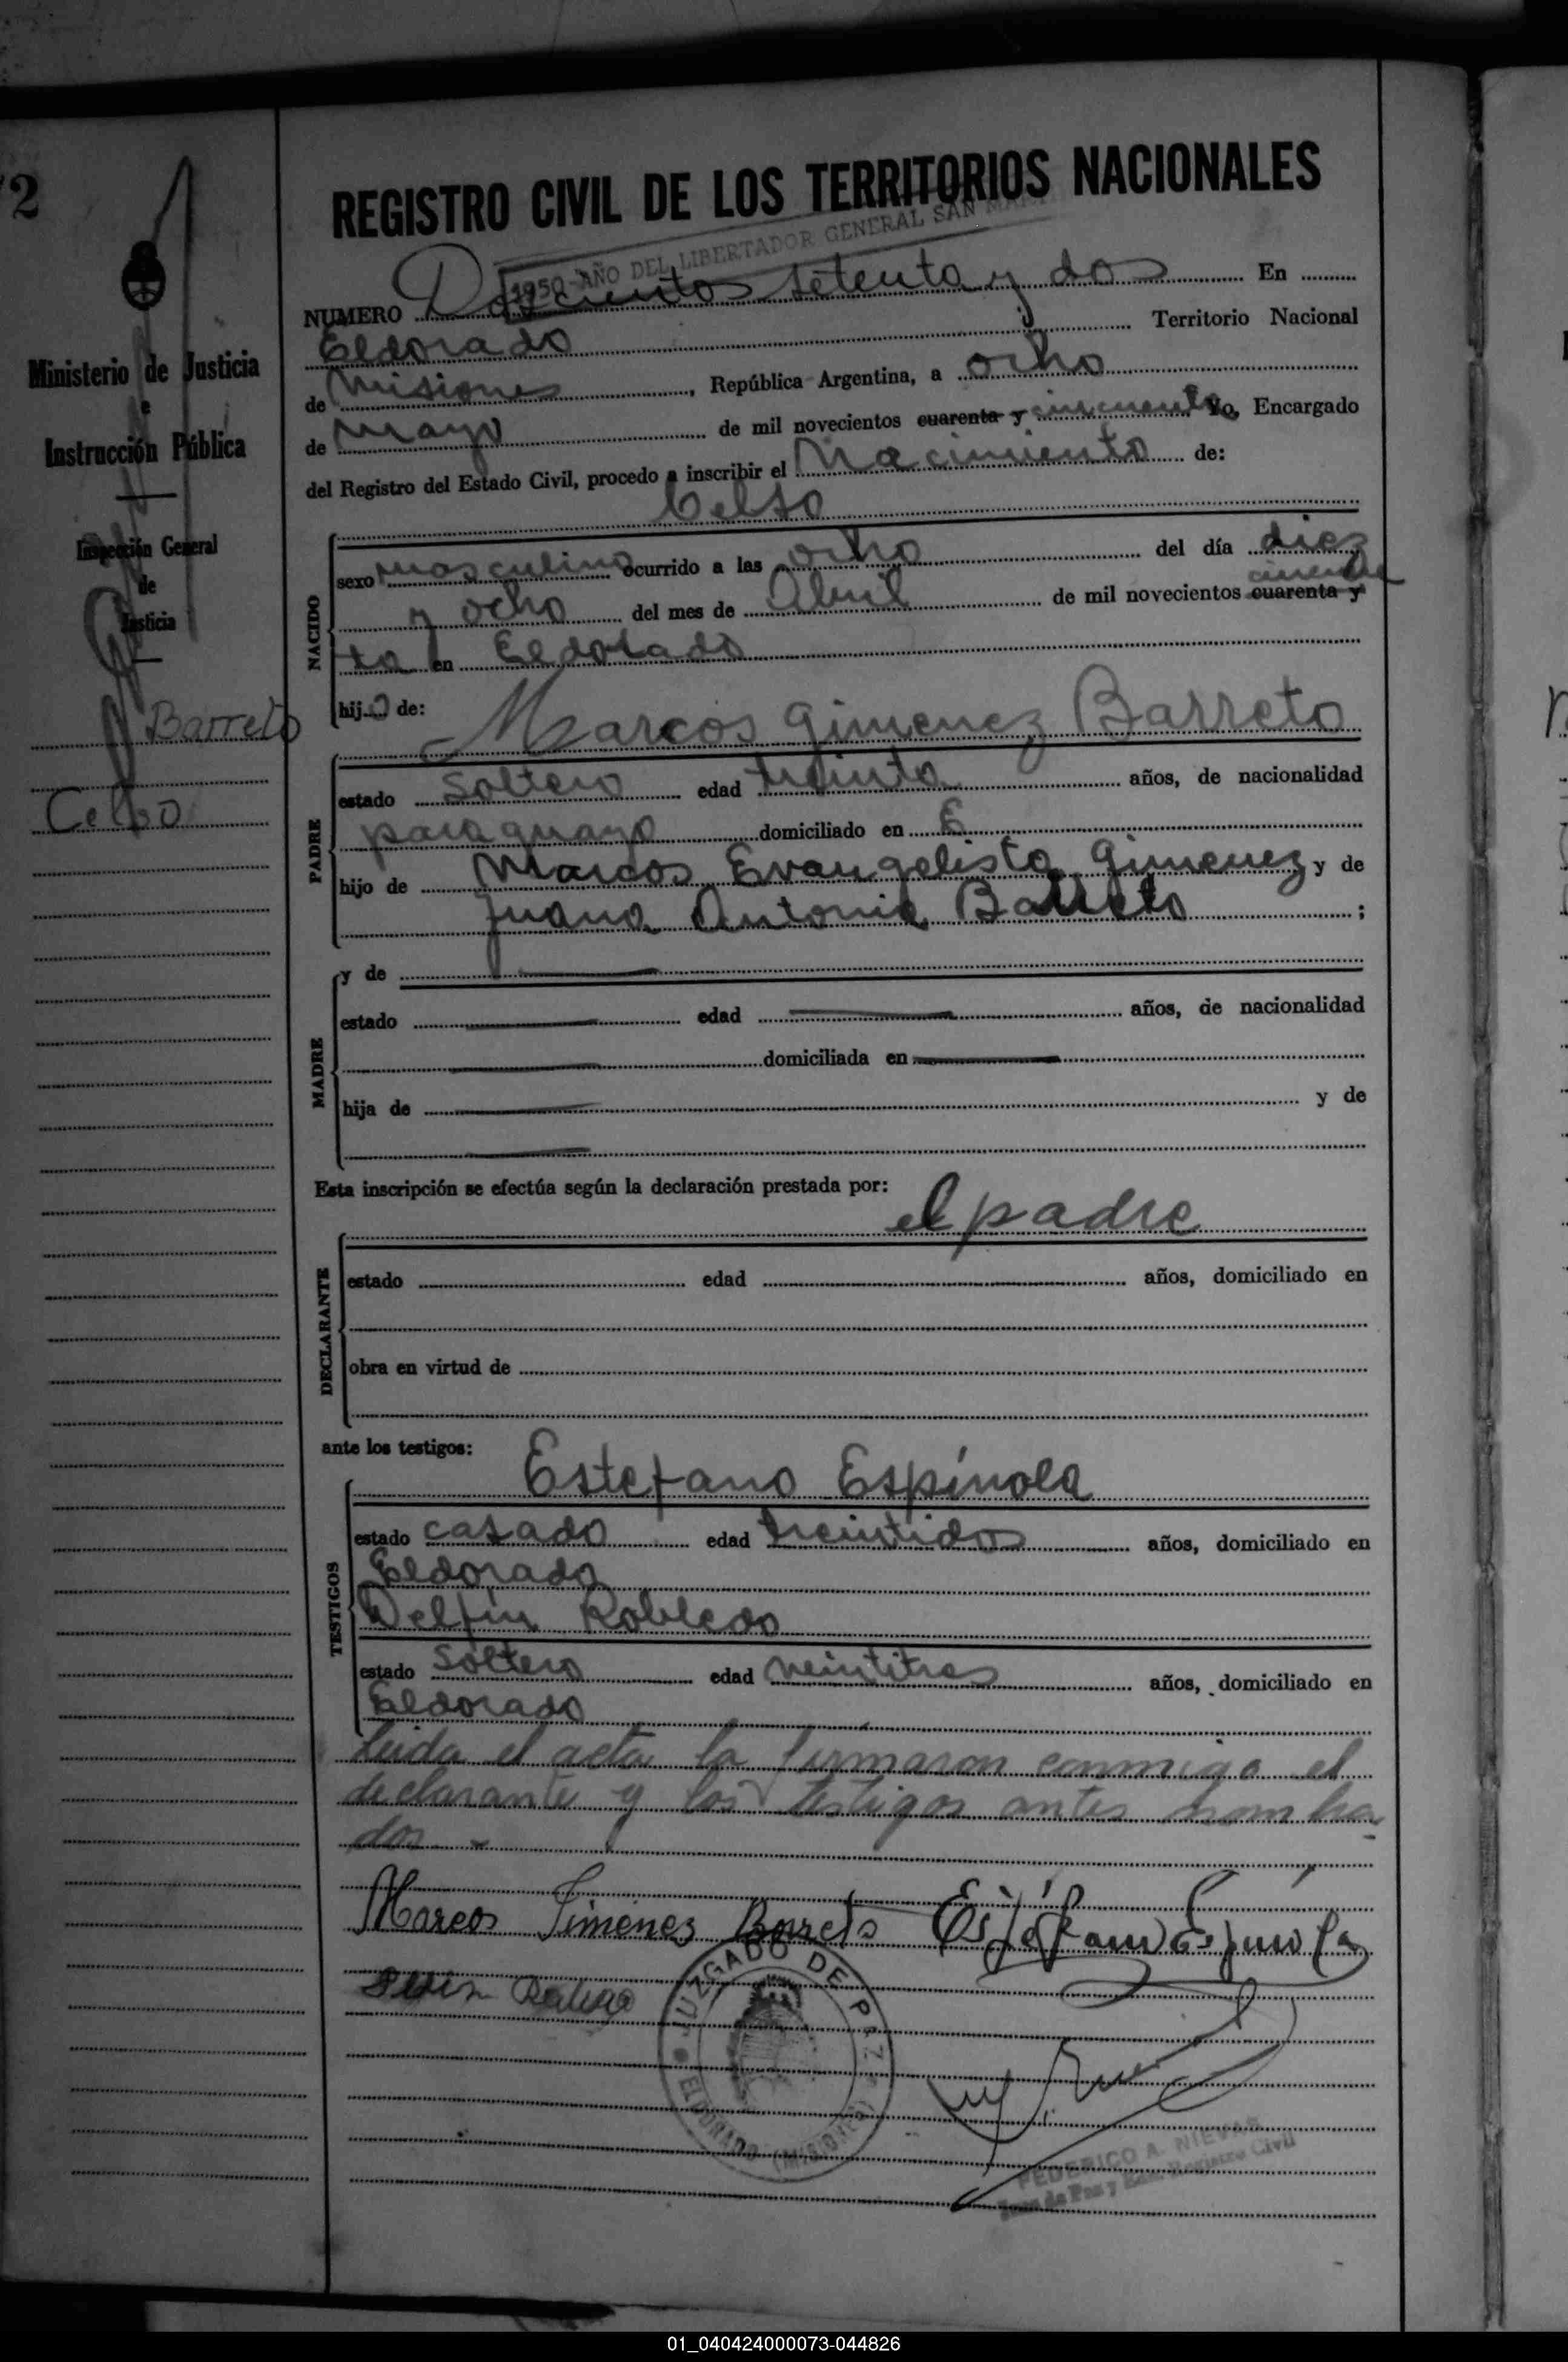 72
Ministerio de Justicia
e
Instrucción Pública
Inspección General
de
Justicia
Barreto
Celso
REGISTRO CIVIL DE LOS TERRITORIOS NACIONALES
1950-AÑO DEL LIBERTADOR GENERAL SAN MARTIN
NUMERO Doscientos setenta y dos En
Eldorado Territorio Nacional
de Misiones, República Argentina, a ocho
de mayo de mil novecientos cuarenta y cincuenta Yo, Encargado
del Registro del Estado Civil, procedo a inscribir el Nacimiento de:
Celso
NACIDO
sexo masculino ocurrido a las ocho del día diez
y ocho del mes de Abril de mil novecientos cuarenta y cincuen
ta en Eldorado
hijo de:
Marcos Gimenez Barreto
PADRE
estado soltero edad treinta años, de nacionalidad
paraguayo domiciliado en E
hijo de Marcos Evangelista Gimenez y de
Juana Antonia Barreto ;
MADRE
y de
estado edad años, de nacionalidad
domiciliada en
hija de y de
Esta inscripción se efectúa según la declaración prestada por:
el padre
DECLARANTE
estado edad años, domiciliado en
obra en virtud de
ante los testigos:
Estefano Espínola
TESTIGOS
estado casado edad treintidos años, domiciliado en
Eldorado
Delfín Robledo
estado soltero edad veintitres años, domiciliado en
Eldorado
Leida el acta la firmaron conmigo el
declarante y los testigos antes nombra
dos.-
Marcos Jimenez Barreto Estefano Espinola
JUZGADO DE PAZ
ELDORADO (MISIONES)
FEDERICO A. NIEVAS
Juez de Paz y Enc. Registro Civil
01_040424000073-044826